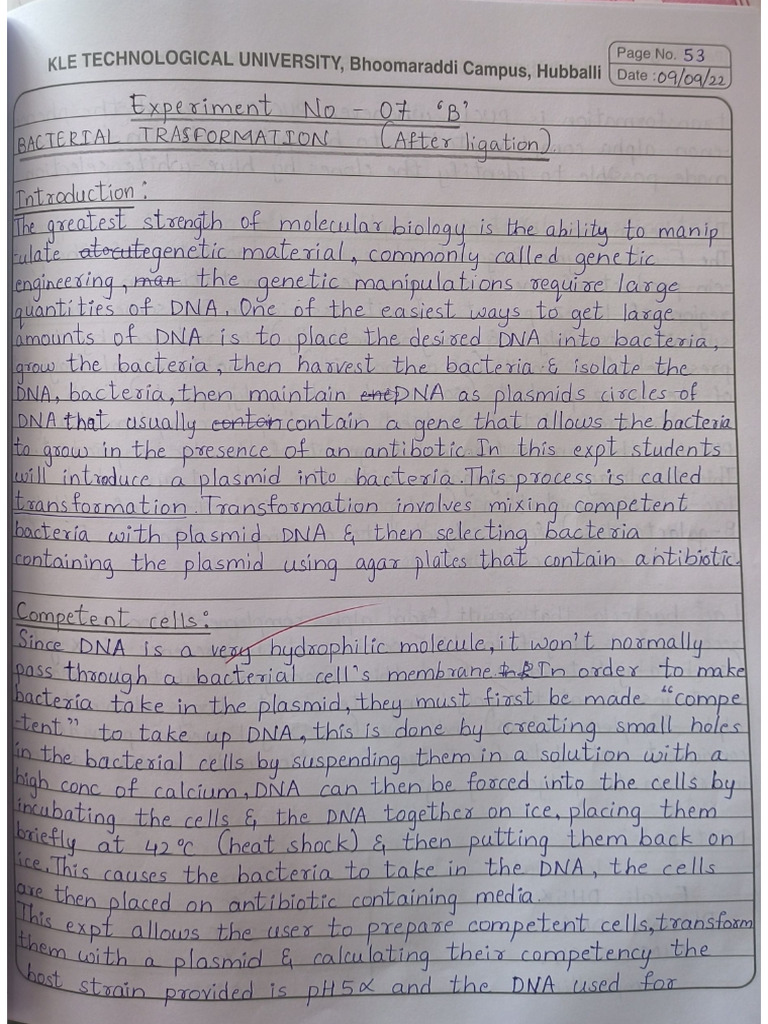 KLE TECHNOLOGICAL UNIVERSITY, Bhoomaraddi Campus, Hubballi
Page No. 53
Date : 09/09/22
Experiment No - 07 'B'
BACTERIAL TRASFORMATION (After ligation).
Introduction :
The greatest strength of molecular biology is the ability to manip
-ulate genetic material, commonly called genetic
engineering, man the genetic manipulations require large
quantities of DNA. One of the easiest ways to get large
amounts of DNA is to place the desired DNA into bacteria,
grow the bacteria, then harvest the bacteria & isolate the
DNA, bacteria, then maintain DNA as plasmids circles of
DNA that usually contain contain a gene that allows the bacteria
to grow in the presence of an antibotic. In this expt students
will introduce a plasmid into bacteria. This process is called
transformation. Transformation involves mixing competent
bacteria with plasmid DNA & then selecting bacteria
containing the plasmid using agar plates that contain antibiotic.
Competent cells :
Since DNA is a very hydrophilic molecule, it won't normally
pass through a bacterial cell's membrane. In order to make
bacteria take in the plasmid, they must first be made "compe
-tent" to take up DNA, this is done by creating small holes
in the bacterial cells by suspending them in a solution with a
high conc of calcium, DNA can then be forced into the cells by
incubating the cells & the DNA together on ice, placing them
briefly at 42°C (heat shock) & then putting them back on
ice. This causes the bacteria to take in the DNA, the cells
are then placed on antibiotic containing media.
This expt allows the user to prepare competent cells, transform
them with a plasmid & calculating their competency the
host strain provided is pH5α and the DNA used for